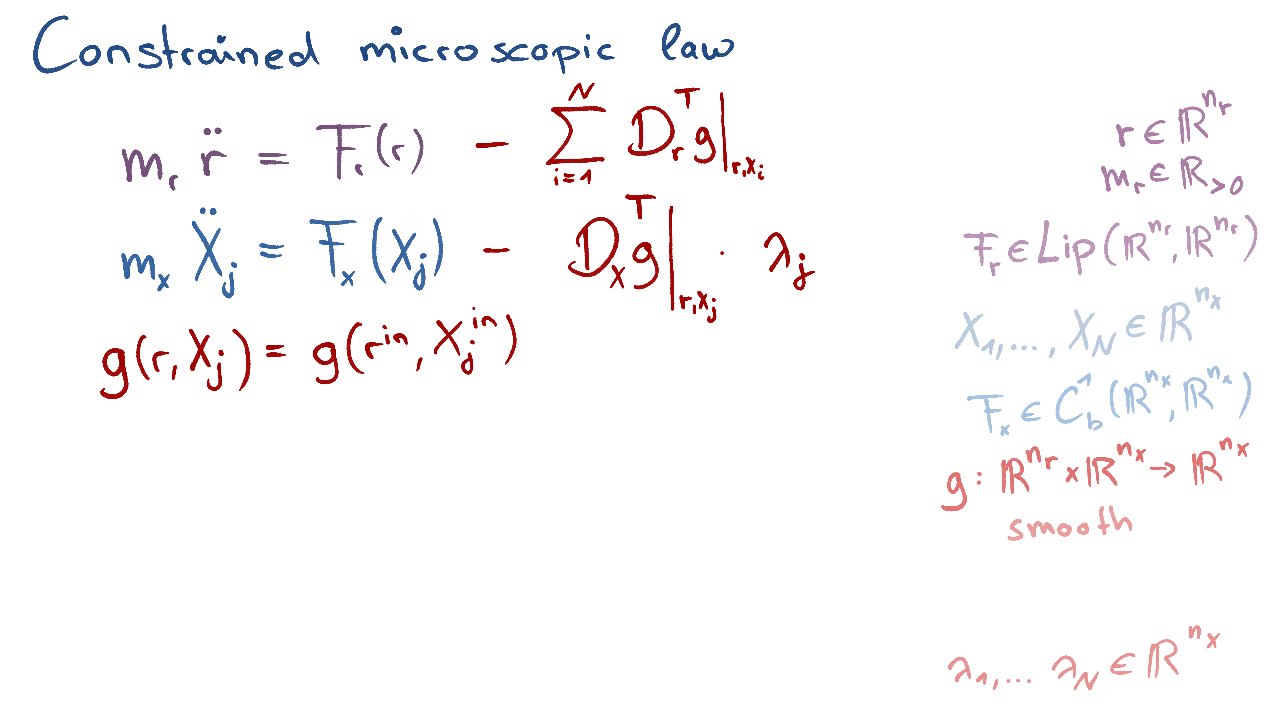 Constrained microscopic law
m_r r̈ = F_r(r) − ∑_{i=1}^{N} D_r^T g|_{r,X_i}
m_x Ẍ_j = F_x(X_j) − D_x^T g|_{r,X_j} · λ_j
g(r, X_j) = g(r^{in}, X_j^{in})
r ∈ ℝ^{n_r}
m_r ∈ ℝ_{>0}
F_r ∈ Lip(ℝ^{n_r}, ℝ^{n_r})
X_1,..., X_N ∈ ℝ^{n_x}
F_x ∈ C_b^1(ℝ^{n_x}, ℝ^{n_x})
g : ℝ^{n_r} × ℝ^{n_x} → ℝ^{n_x}
smooth
λ_1,... λ_N ∈ ℝ^{n_x}